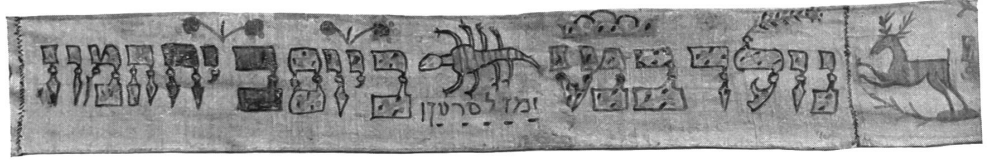 נולד במזט ביום ב יח תמוז
מזל סרטן